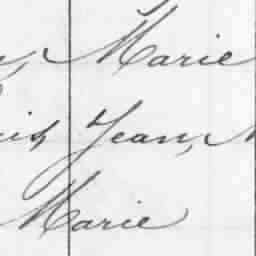 Marie
Jean,
Marie